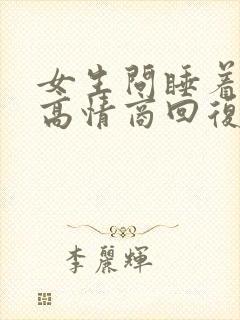 女生問睡着
高情商回復
李麗輝